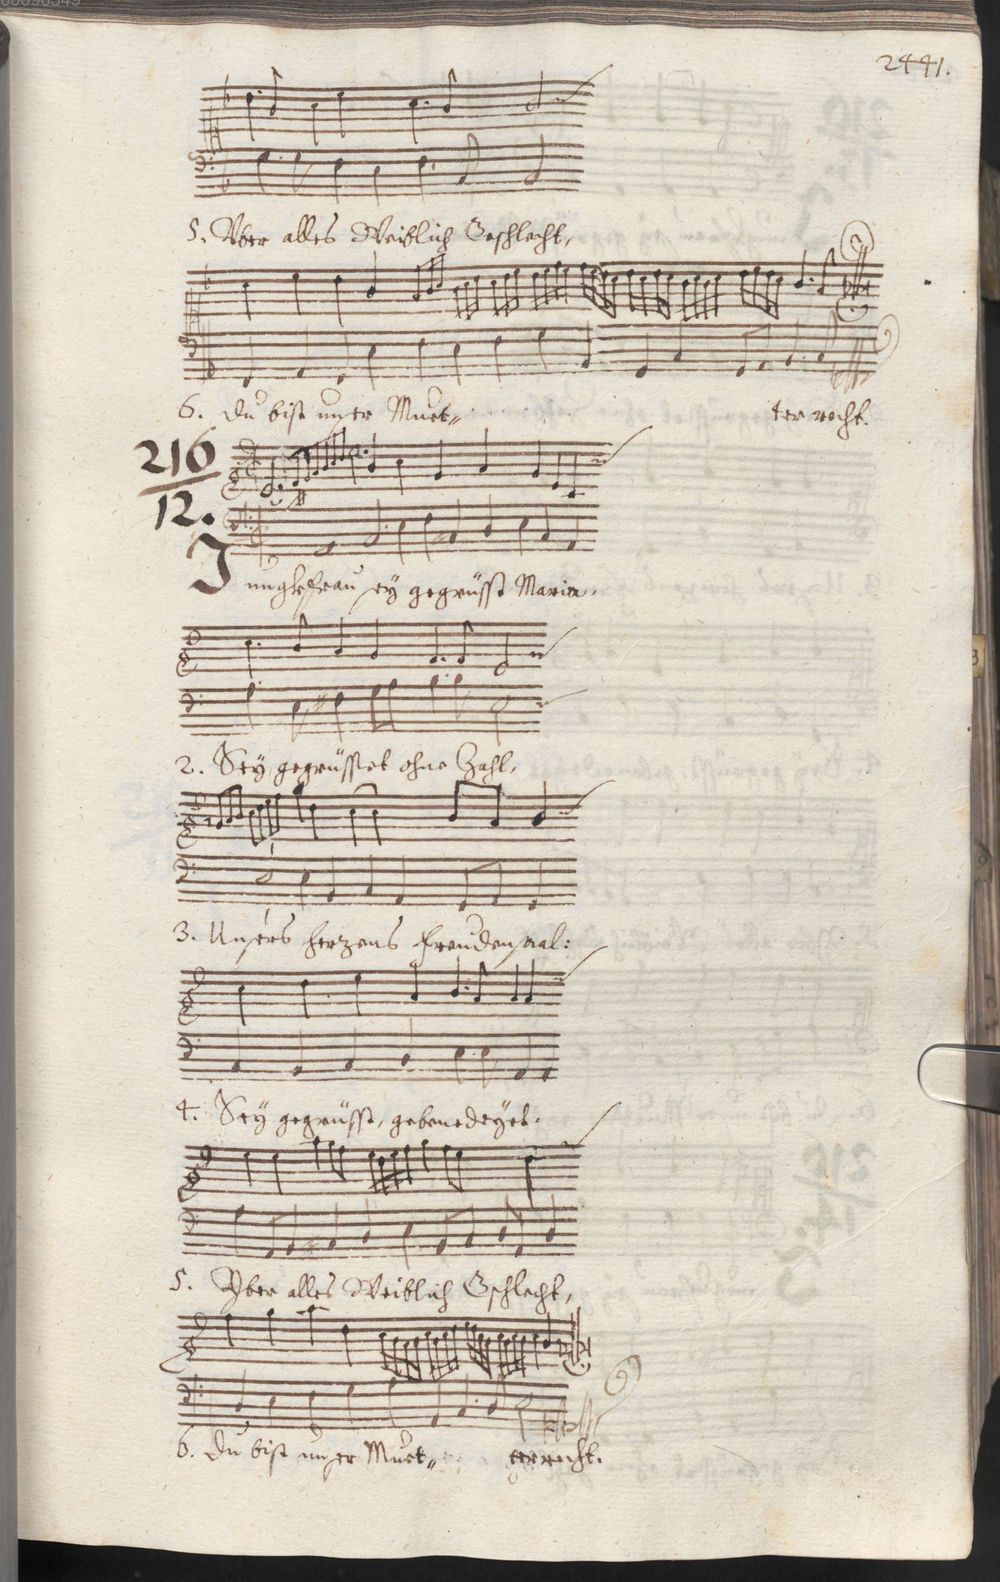 2441.
5. Yber alles Weiblich Geschlecht,
6. Du bist unser Muet„ ter recht.
216
12.
Jungkfrau sey gegrüsst Maria.
2. Sey gegrüsset ohne Zahl,
3. Unsers herzens freuden saal:
4. Sey gegrüsst, gebenedeyet.
5. Yber alles Weiblich Gschlecht,
6. Du bist unser Muet„ ter recht.